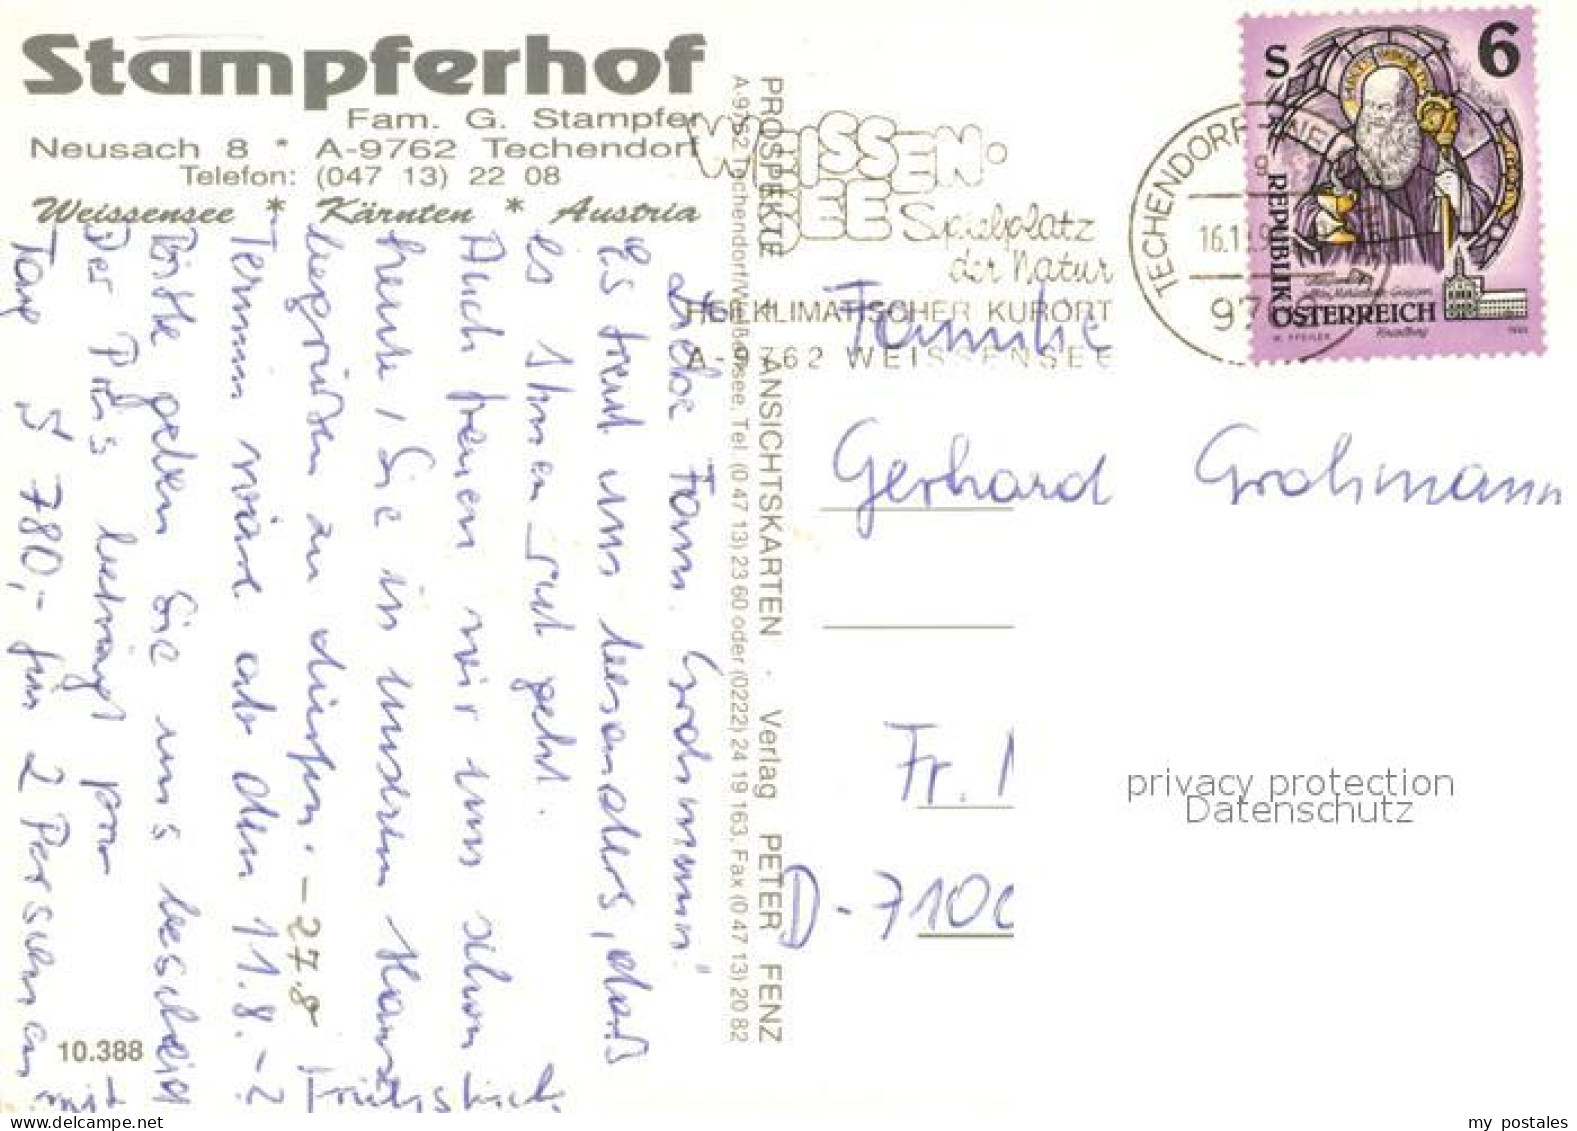 Stampferhof
Fam. G. Stampfer
Neusach 8 * A-9762 Techendorf
Telefon: (047 13) 22 08
Weissensee * Kärnten * Austria
WEISSEN-
SEE Spielplatz
der Natur
HEILKLIMATISCHER KURORT
A-9762 WEISSENSEE
TECHENDORF
16.1
S 6
REPUBLIK
ÖSTERREICH
Familie
Gerhard Grohmann
Fr.
D-7100
privacy protection
Datenschutz
PROSPEKTE + ANSICHTSKARTEN · Verlag PETER FENZ
A-9762 Techendorf/Weißensee, Tel. (0 47 13) 23 60 oder (0222) 24 19 163, Fax (0 47 13) 20 82
Liebe Fam. Grohmann!
Es freut uns besonders, daß
es Ihnen gut geht.
Auch freuen wir uns schon
heute, Sie in unserem Hause
begrüßen zu dürfen. - 27.8
Termin wäre ab den 11.8. - ?
Bitte geben Sie uns bescheid
Der Preis beträgt pro
Tag S 780,- für 2 Personen
mit Frühstück
10.388
www.delcampe.net
my postales